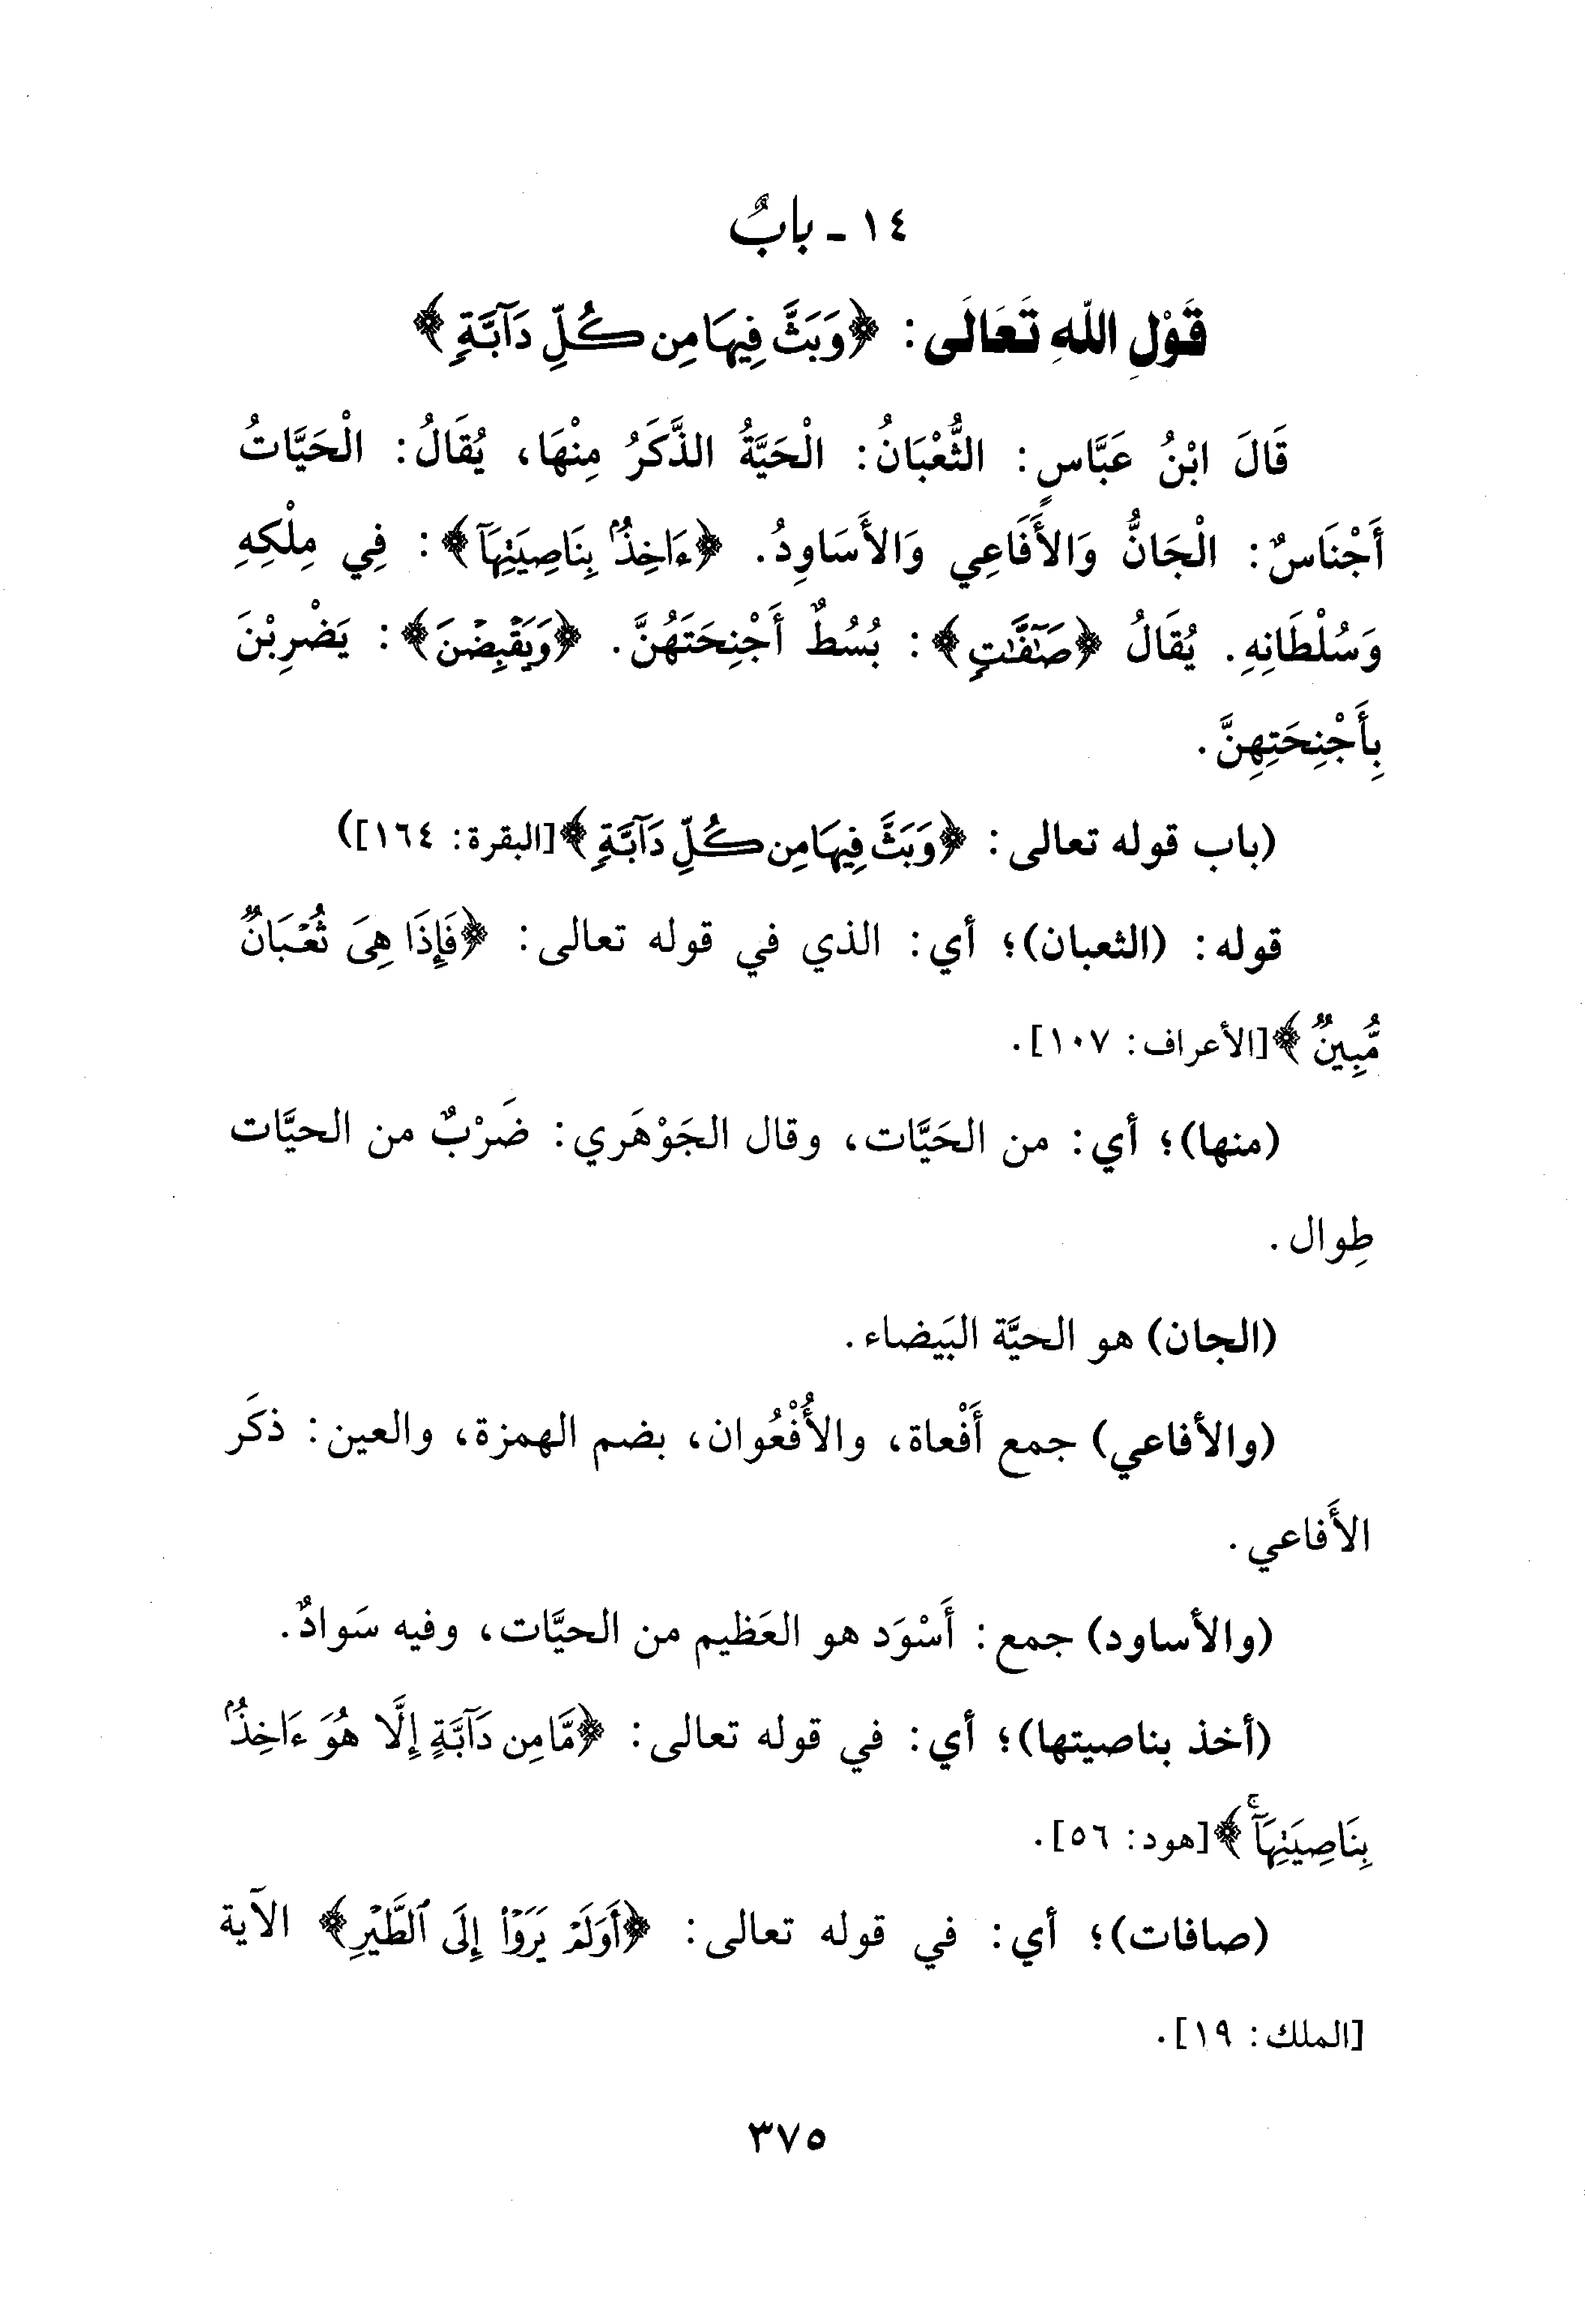 ١٤ - بابٌ
قَوْلِ اللهِ تَعَالَى: ﴿وَبَثَّ فِيهَا مِن كُلِّ دَآبَّةٍ﴾
قَالَ ابْنُ عَبَّاسٍ: الثُّعْبَانُ: الْحَيَّةُ الذَّكَرُ مِنْهَا، يُقَالُ: الْحَيَّاتُ
أَجْنَاسٌ: الْجَانُّ وَالأَفَاعِي وَالأَسَاوِدُ. ﴿ءَاخِذُۢ بِنَاصِيَتِهَآ﴾: فِي مِلْكِهِ
وَسُلْطَانِهِ. يُقَالُ ﴿صَٰٓفَّٰتٍ﴾: بُسُطٌ أَجْنِحَتَهُنَّ. ﴿وَيَقْبِضْنَ﴾: يَضْرِبْنَ
بِأَجْنِحَتِهِنَّ.
(باب قوله تعالى: ﴿وَبَثَّ فِيهَا مِن كُلِّ دَآبَّةٍ﴾[البقرة: ١٦٤])
قوله: (الثعبان)؛ أي: الذي في قوله تعالى: ﴿فَإِذَا هِىَ ثُعْبَانٌ
مُّبِينٌ﴾[الأعراف: ١٠٧].
(منها)؛ أي: من الحَيَّات، وقال الجَوْهَري: ضَرْبٌ من الحيَّات
طِوال.
(الجان) هو الحيَّة البَيضاء.
(والأفاعي) جمع أَفْعاة، والأُفْعُوان، بضم الهمزة، والعين: ذكَر
الأَفاعي.
(والأساود) جمع: أَسْوَد هو العَظيم من الحيَّات، وفيه سَوادٌ.
(أخذ بناصيتها)؛ أي: في قوله تعالى: ﴿مَّا مِن دَآبَّةٍ إِلَّا هُوَ ءَاخِذُۢ
بِنَاصِيَتِهَآۚ﴾[هود: ٥٦].
(صافات)؛ أي: في قوله تعالى: ﴿أَوَلَمْ يَرَوْا۟ إِلَى ٱلطَّيْرِ﴾ الآية
[الملك: ١٩].
٣٧٥